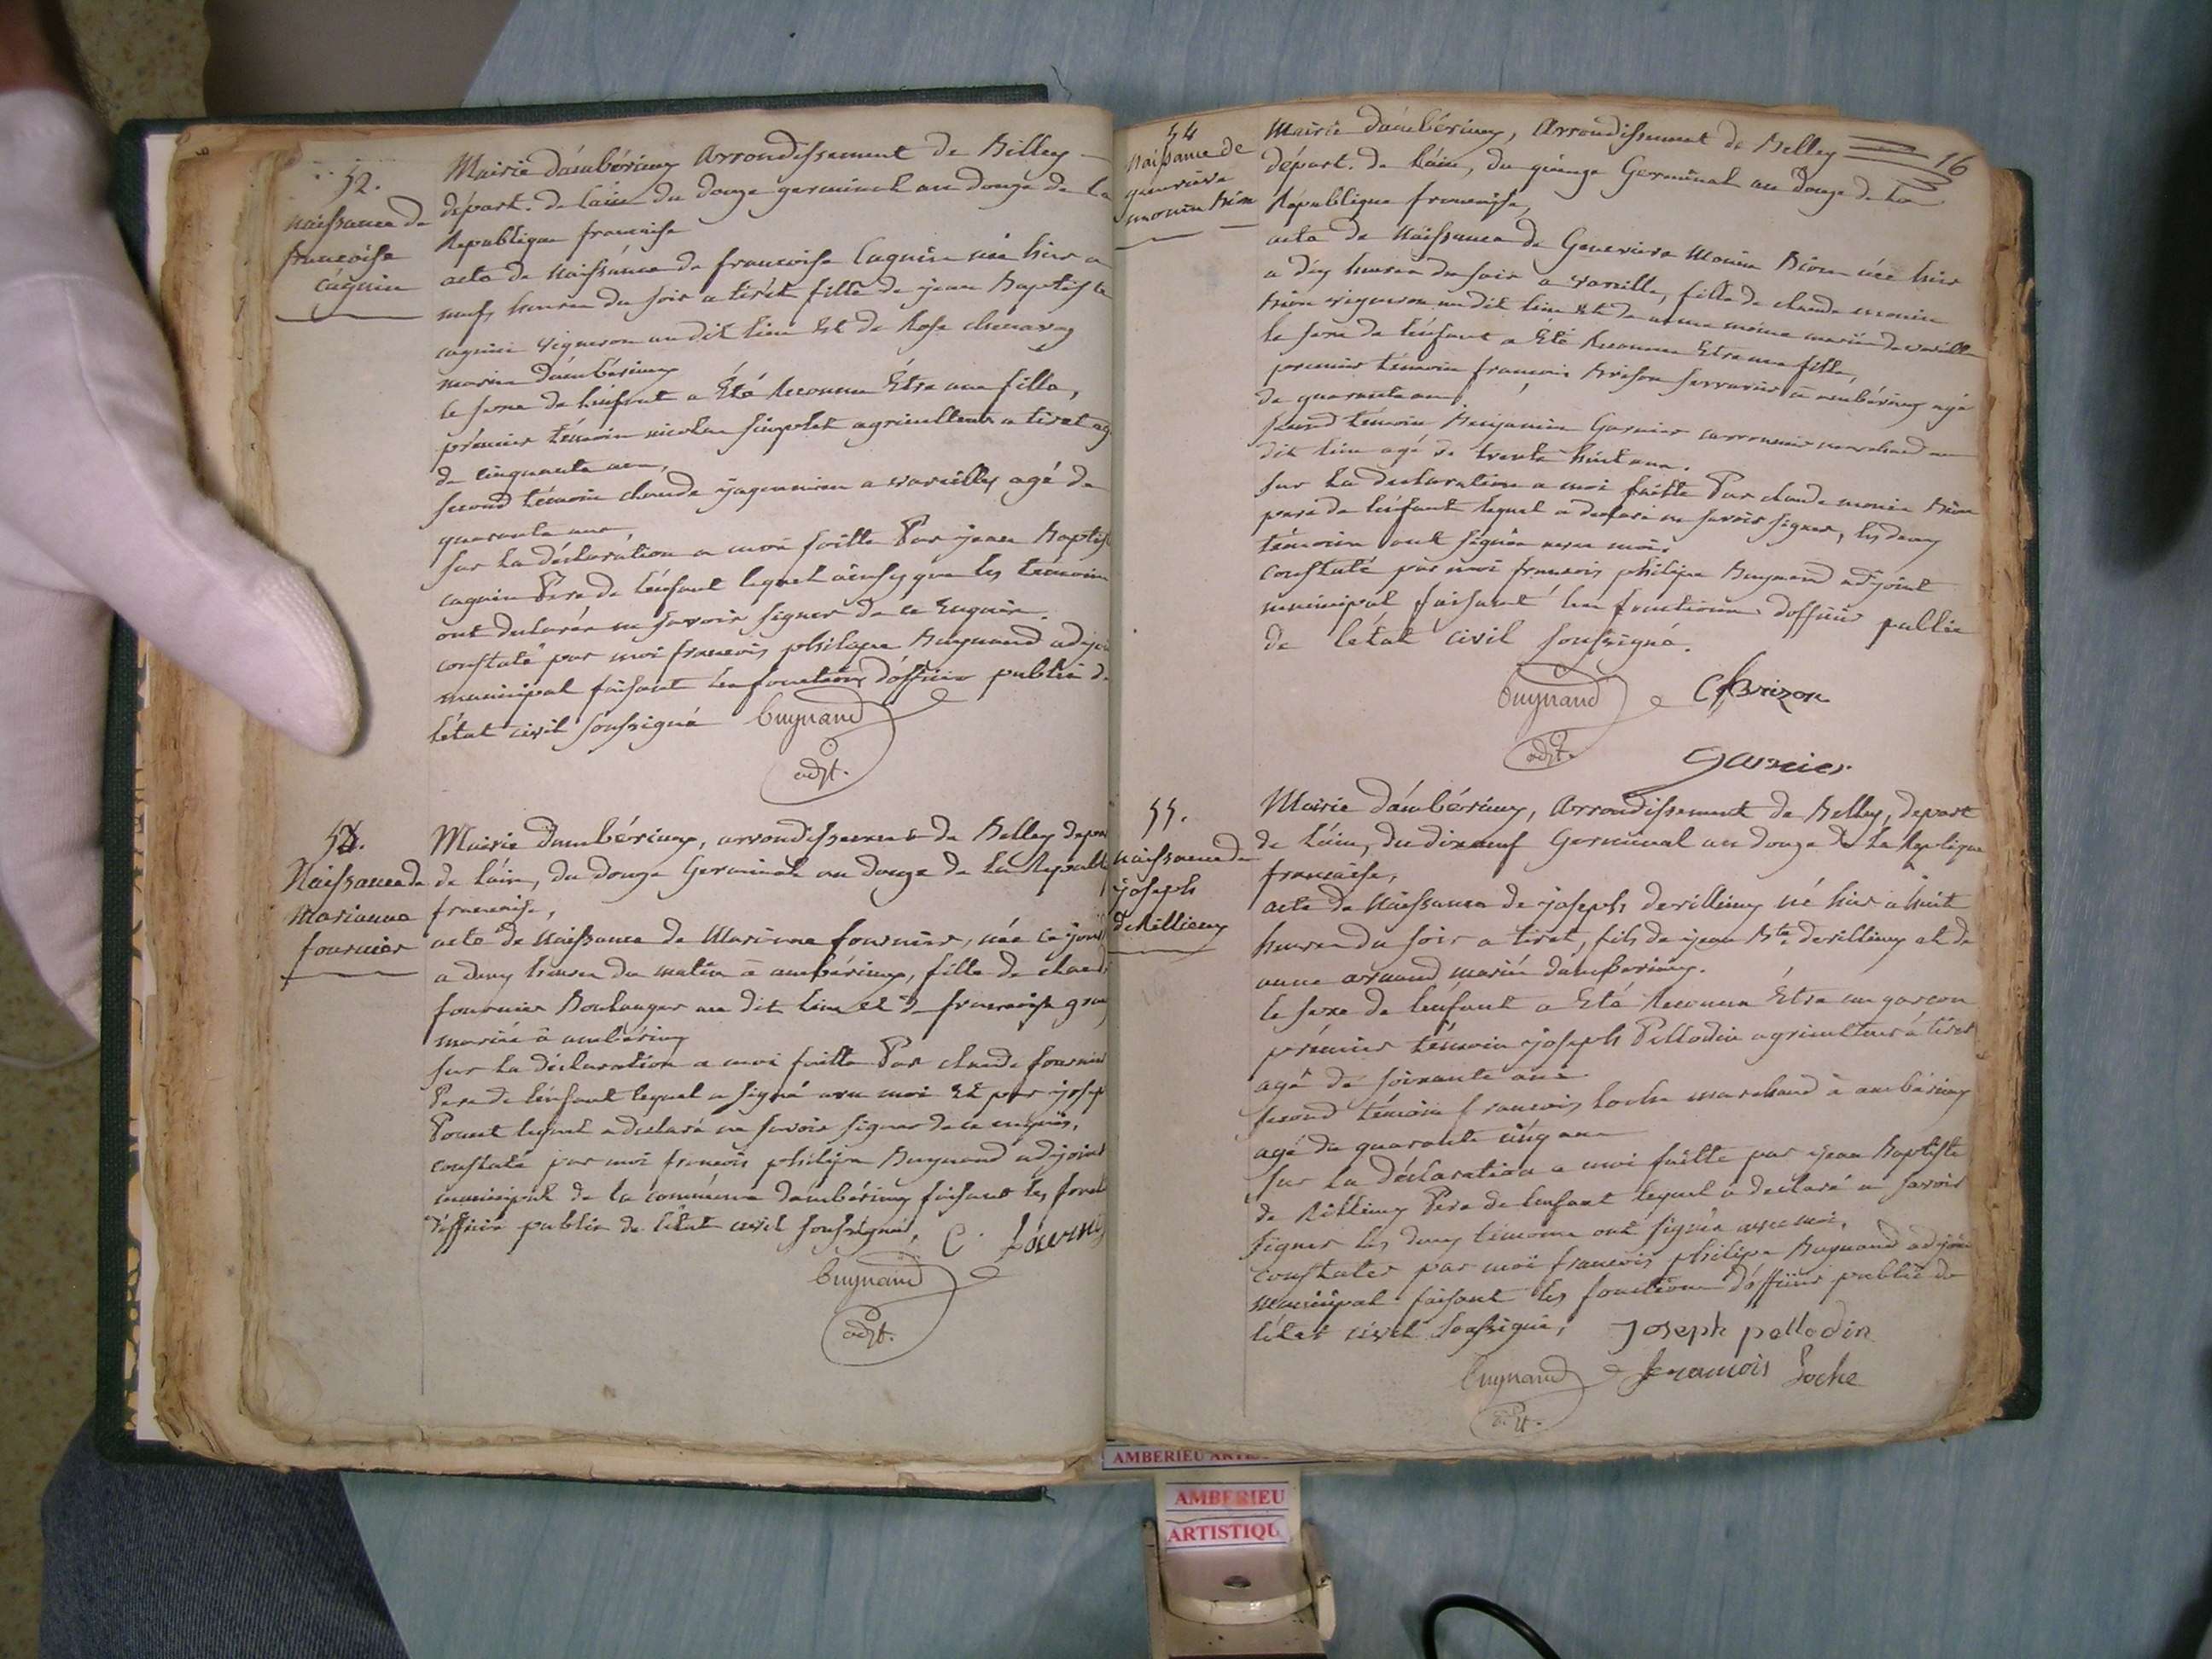 52.
Naissance de
francoise
Caguin
Mairie d'ambérieux Arrondissement de Belley
départ. de l'ain du douze germinal an douze de la
Republique francaise
acte de Naissance de francoise Caguin née hier a
neufs heures du soir a tirét fille de jean Baptiste
caguin vigneron au dit lieu Et de Rose
mariée d'ambérieux
le sexe de l'enfant a Été Reconnu Être une fille,
prémier témoin nicolas agriculteur a tiret ag
de cinquante ans,
second témoin claude jaquemier a vareilles agé de
quarante ans,
sur la déclaration a moi faitte Par jean Baptis
caguin Pere de l'enfant lequel ainsy que les témoins
ont declarés ne savoir signer de ce Enquis.
constaté par moi francois philipe Buynand adjoi
municipal faisant les fonctions d'officier public de
l'état civil soussigné Buynand
adjt.
53.
Naissance de
Marianne
fournier
Mairie d'ambérieux, arrondissement de Belley depar
de l'ain, du douze Germinal an douze de la Republi
francaise,
acte de Naissance de Marianne fournier, née ce jour
a deux heures du matin a ambérieux, fille de claude
fournier Boulanger au dit lieu et de francoise
mariée a ambérieux
sur la déclaration a moi faitte Par claude fournier
Pere de l'enfant lequel a signé avec moi Et par josep
lequel a declaré ne savoir signer de ce enquis,
constaté par moi francois philipe Buynand adjoint
municipal de la commune d'ambérieux faisant les fonct
d'officier public de l'état civil soussigné,
C. fournier
Buynand
adjt.
16
54
Naissance de
genevieve
monin Bion
Mairie d'ambérieux, Arrondissement de Belley
départ. de l'ain, du quinze Germinal an douze de la
Republique francaise,
acte de Naissance de Genevieve Monin Bion née hier
a dix heures du soir a vareille, fille de claude monin
Bion vigneron au dit lieu et de anne moine mariée de vareille
le sexe de l'enfant a Été Reconnu Etre une fille,
premier témoin francois Brison serrurier a ambérieux agé
de quarante ans,
second témoin Benjamin Garnier marchand au
dit lieu agé de trente huit ans.
sur la declaration a moi faitte Par claude monin Bion
pere de l'enfant lequel a declaré ne savoir signer, les deux
témoins ont signés avec moi.
constaté par moi francois philipe Buynand adjoint
municipal faisant les fonctions d'officier public
de l'état civil soussigné.
Buynand
adjt.
Brizon
Garnier
55.
Naissance de
joseph
de Rillieux
Mairie d'ambérieux, Arrondissement de Belley, depart
de l'ain, du dixneuf Germinal an douze de la Replique
francaise,
acte de Naissance de joseph derillieux né hier a huit
heures du soir a tiret, fils de jean Bte derillieux et de
anne arnaud mariée d'ambérieux.
le sexe de l'enfant a Eté Reconnu Être un garcon
prémier témoin joseph Pellodin agriculteur a tiret
agé de soixante ans
second témoin francois Loche marchand a ambérieux
agé de quarante cinq ans
sur la déclaration a moi faitte par jean Baptiste
de Rillieux Pere de l'enfant lequel a declaré ne savoir
signer les deux temoins ont signés avec moi,
constater par moi francois philipe Buynand adjoin
municipal faisant les fonctions d'officier public de
l'état civil soussigné,
Joseph pellodin
Buynand
francois Loche
adjt.
AMBERIEU
AMBERIEU
ARTISTIQU